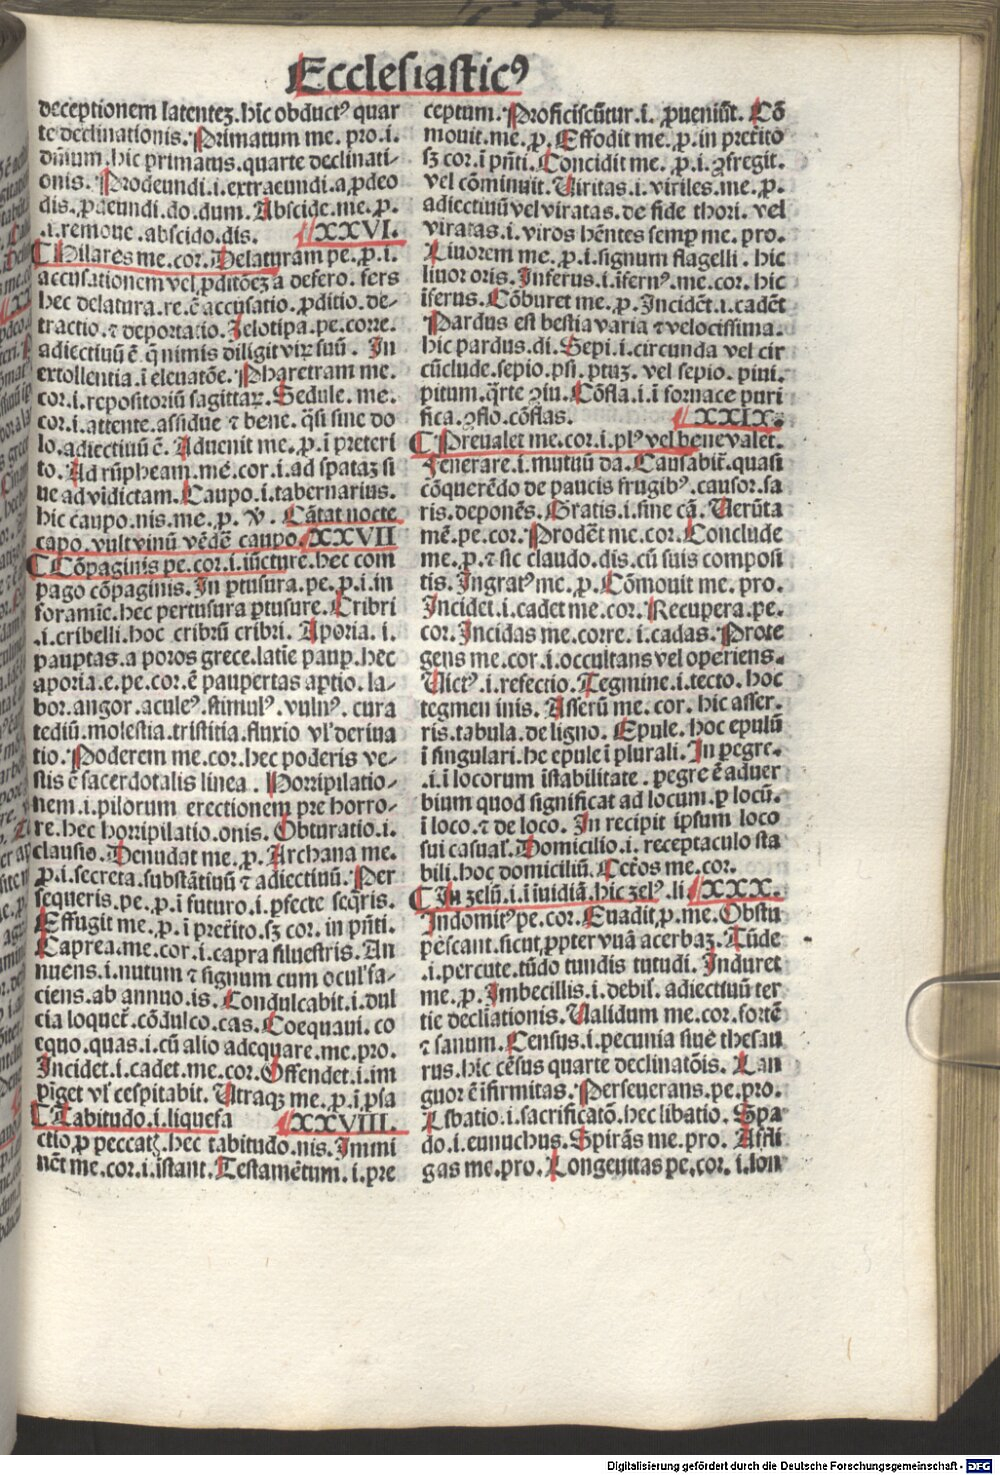 Ecclesiasticꝰ
deceptionem latentez. hic obductꝰ quar
te declinationis. Primatum me. pro .i.
dñium. hic primatus. quarte declinati-
onis. Prodeundi .i. extraeundi .a. ꝓdeo
dis. ꝓdeundi. do. dum. Abscide. me. ꝓ.
.i. remoue. abscido. dis. XXVI.
Hilares me. cor. Delaturam pe. ꝓ. i.
accusationem vel ꝓditõez a defero. fers
hec delatura. re. ē accusatio. ꝓditio. de-
tractio. ⁊ deportatio. Zelotipa. pe. corre.
adiectiuū ē. q̄ nimis diligit virꝝ suū. In
extollentia .i. eleuatõe. Pharetram me.
cor. i. repositoriū sagittaꝝ. Sedule. me.
cor. i. attente. assidue ⁊ bene. q̃si sine do
lo. adiectiuū ē. Aduenit me. ꝓ. i preteri
to. Ad rūpheam. mē. cor. i. ad spataz si
ue ad vidictam. Caupo .i. tabernarius.
hic caupo. nis. me. ꝓ. ꝟ. Cātat nocte
capo. vult vinū vēdē caupo. XXVII
Cōpaginis pe. cor. i. iūcture. hec com
pago cōpaginis. In ꝑtusura. pe. ꝓ. i. in
foramīe. hec pertusura ꝑtusure. Cribri
.i. cribelli. hoc cribrū cribri. Aporia. i.
pauꝑtas. a poros grece. latīe pauꝑ. hec
aporia. e. pe. cor. ē paupertas aꝑtio. la-
bor. angor. aculeꝰ. stimulꝰ. vulnꝰ. cura
tediū. molestia. tristitia. fluxio vl̓ deriua
tio. Poderem me. cor. hec poderis ve-
stis ē sacerdotalis linea. Horripilatio-
nem .i. pilorum erectionem pre horro-
re. hec horripilatio. onis. Obturatio .i.
clausio. Denudat me. ꝓ. Archana me.
ꝓ. i. secreta. substātiuū ⁊ adiectiuū. Per
sequeris. pe. ꝓ. i futuro .i. ꝑfecte seq̄ris.
Effugit me. ꝓ. i preterito. sz cor. in pn̄ti.
Caprea. me. cor. i. capra siluestris. An
nuens .i. nutum ⁊ signum cum oculꝭ fa-
ciens. ab annuo. is. Condulcabit .i. dul
cia loquet̄. cōdulco. cas. Coequaui. co
equo. quas. i. cū alio adequare. me. pro.
Incidet .i. cadet. me. cor. Offendet .i. im
pīget vl̓ cespitabit. Utraqꝫ me. ꝓ. i. ip̄a
Tabitudo .i. liquefa XXVIII.
ctio ꝓ peccatꝭ. hec tabitudo. nis. Immi
nēt me. cor. i. īstant. Testamētum .i. pre
ceptum. Proficiscūtur .i. ꝓueniūt. Cō
mouit. me. ꝓ. Effodit me. ꝓ. in preterito
sz cor. ī pn̄ti. Concidit me. ꝓ. i. ꝯfregit.
vel cōminuit. Viritas .i. viriles. me. ꝓ.
adiectiuū vel viratas. de fide thori. vel
viratas .i. viros hētes semꝑ me. pro.
Liuorem me. ꝓ. i. signum flagelli. hic
liuor oris. Inferus .i. īfernꝰ. me. cor. hic
īferus. Cōburet me. ꝓ. Incidēt .i. cadēt
Pardus est bestia varia ⁊ velocissima.
hic pardus. di. Sepi .i. circunda vel cir
cūclude. sepio. psi. ptuz. vel sepio. piui.
pitum. q̄rte ꝯiu. Cōfla .i. ī fornace puri
fica. ꝯflo. cōflas. XXIX.
Preualet me. cor. i. plꝰ vel bene valet.
Fenerare .i. mutuū da. Causabit̄. quasi
cōquerēdo de paucis frugibꝰ. causor. sa
ris. deponēs. Gratis .i. sine cā. Veruta
mē. pe. cor. Prodēt me. cor. Conclude
me. ꝓ. ⁊ sic claudo. dis. cū suis composi
tis. Ingratꝰ me. ꝓ. Cōmouit me. pro.
Incidet .i. cadet me. cor. Recupera. pe.
cor. Incidas me. corre. i. cadas. Prote
gens me. cor. i. occultans vel operiens.
Victꝰ .i. refectio. Tegmine .i. tecto. hoc
tegmen inis. Asserū me. cor. hic asser.
ris. tabula. de ligno. Epule. hoc epulū
ī singulari. he epule ī plurali. In ꝑegre.
.i. ī locorum īstabilitate. ꝑegre ē aduer
bium quod significat ad locum. ꝑ locū.
ī loco. ⁊ de loco. In recipit ipsum loco
sui casual̓. Domicilio .i. receptaculo sta
bili. hoc domiciliū. Cet̄os me. cor.
In zelū .i. ī iuidiā. hic zelꝰ. li XXX.
Indomitꝰ pe. cor. Euadit, ꝓ. me. Obstu
pēscant. sicut ꝓpter vuā acerbaz. Tūde
.i. percute. tūdo tundis tutudi. Induret
me. ꝓ. Imbecillis .i. debil̓. adiectiuū ter
tie decliationis. Validum me. cor. fortē
⁊ sanum. Census .i. pecunia siue thesau
rus. hic cēsus quarte declinatōis. Lan
guor ē īfirmitas. Perseuerans. pe. pro.
Libatio .i. sacrificatō. hec libatio. Spa
do .i. eunuchus. Spirās me. pro. Affli
gas me. pro. Longeuitas pe. cor. i. lon
Digitalisierung gefördert durch die Deutsche Forschungsgemeinschaft - DFG